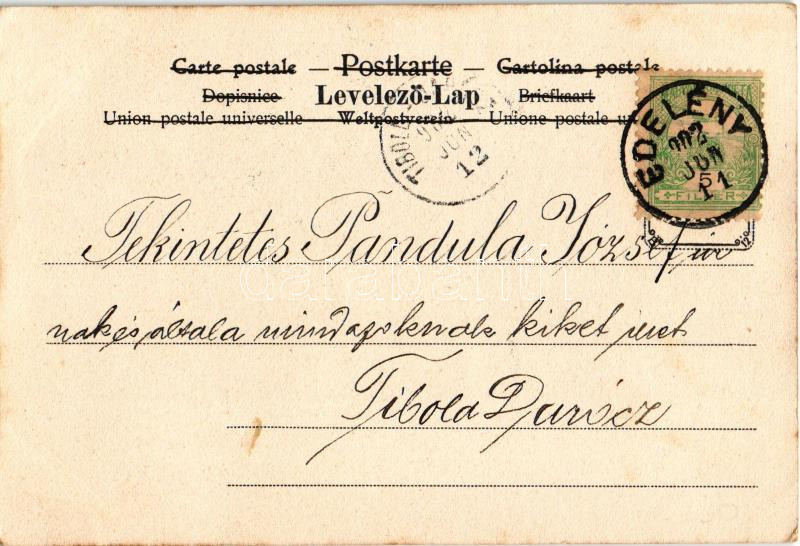 Carte postale — Postkarte — Cartolina postale
Dopisnice Levelező-Lap Briefkaart
Union postale universelle Weltpostverein Unione postale un
TIBOLD
90
JUN
12
EDELÉNY
902
JUN
11
5
FILLÉR
Tekintetes Pandula József úr
nak és általa mindazoknak kiket illet
Tibold Darócz